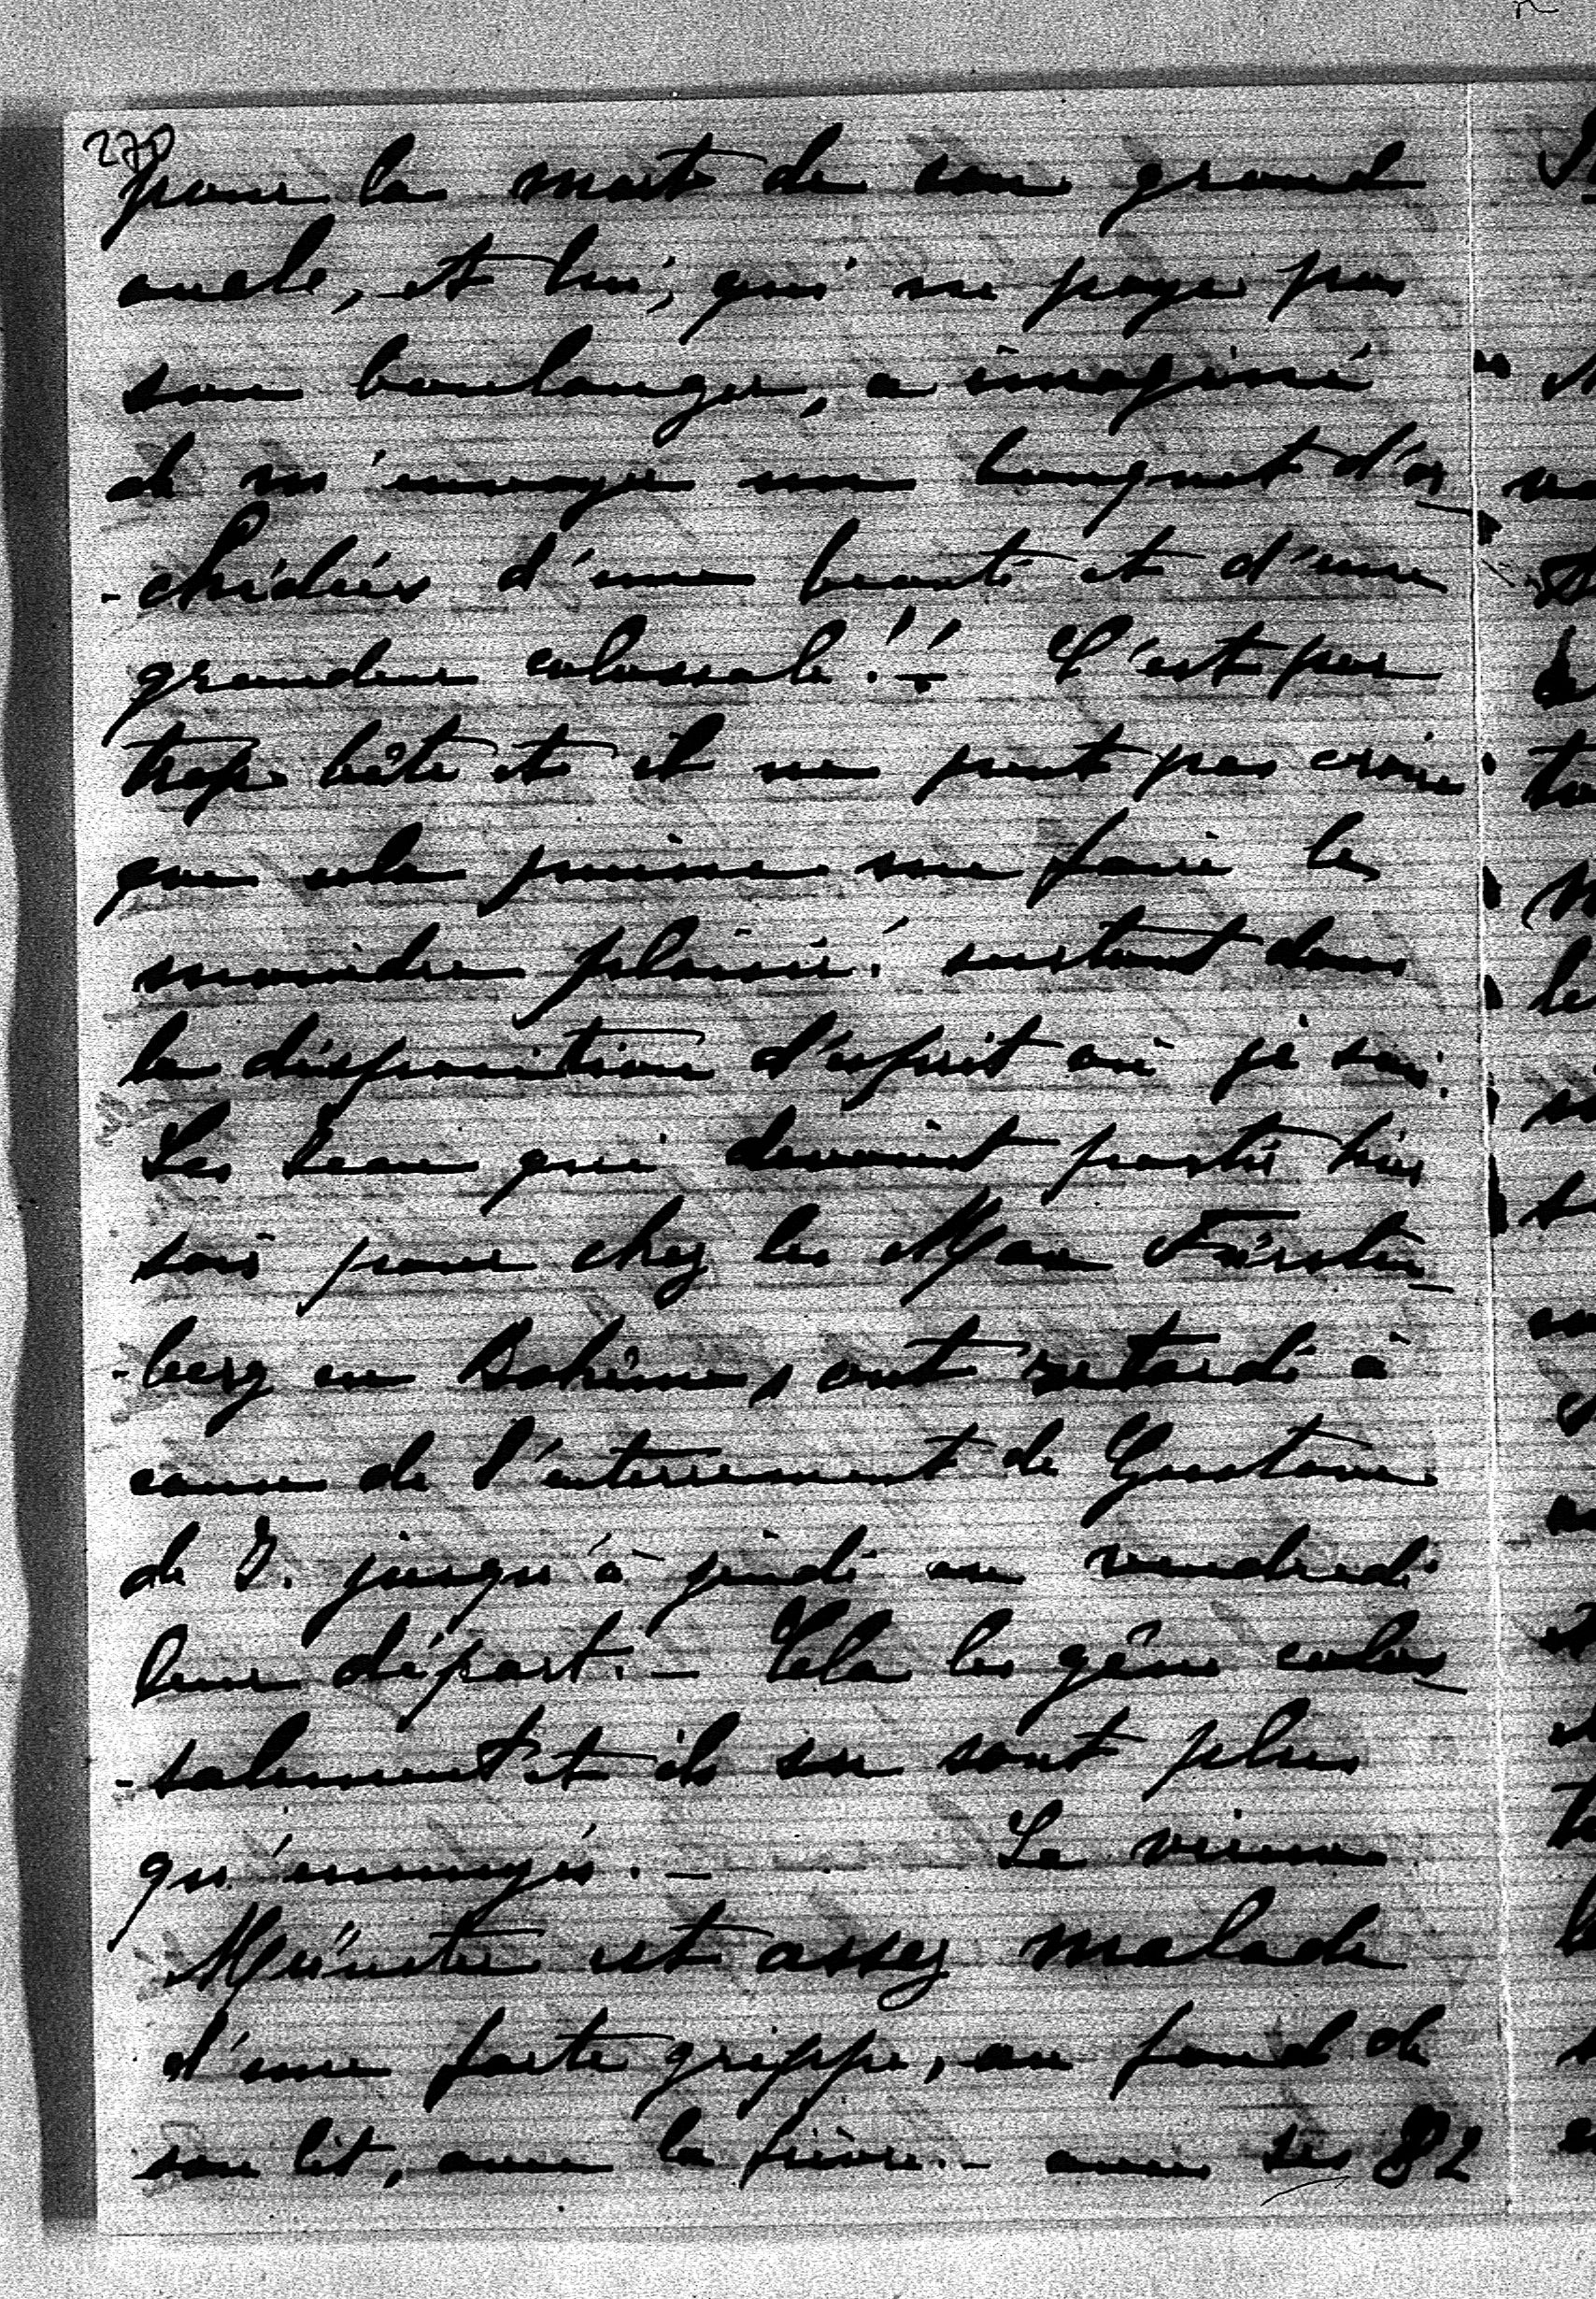 270
pour la mort de son grand
oncle, et lui, qui ne paye pas
son boulanger, a imaginé
de m'envoyer un bouquet d'or-
-chidées d'une beauté et d'une
grandeur colossale!! C'est par
trop bête et il ne peut pas croire
que cela puisse me faire le
moindre plaisir! surtout dans
la disposition d'esprit où je suis.
Les Jean qui devaient partir hier
soir pour chez les Max Fürsten-
-berg en Bohême, ont retardé à
cause de l'enterrement de Gustave
de I. jusqu'à jeudi ou vendredi
leur départ. - Cela les gêne colos-
-salement et ils en sont plus
qu'ennuyés. - Le vieux
Münster est assez malade
d'une forte grippe, au fond de
son lit, avec la fièvre. - avec ses 82